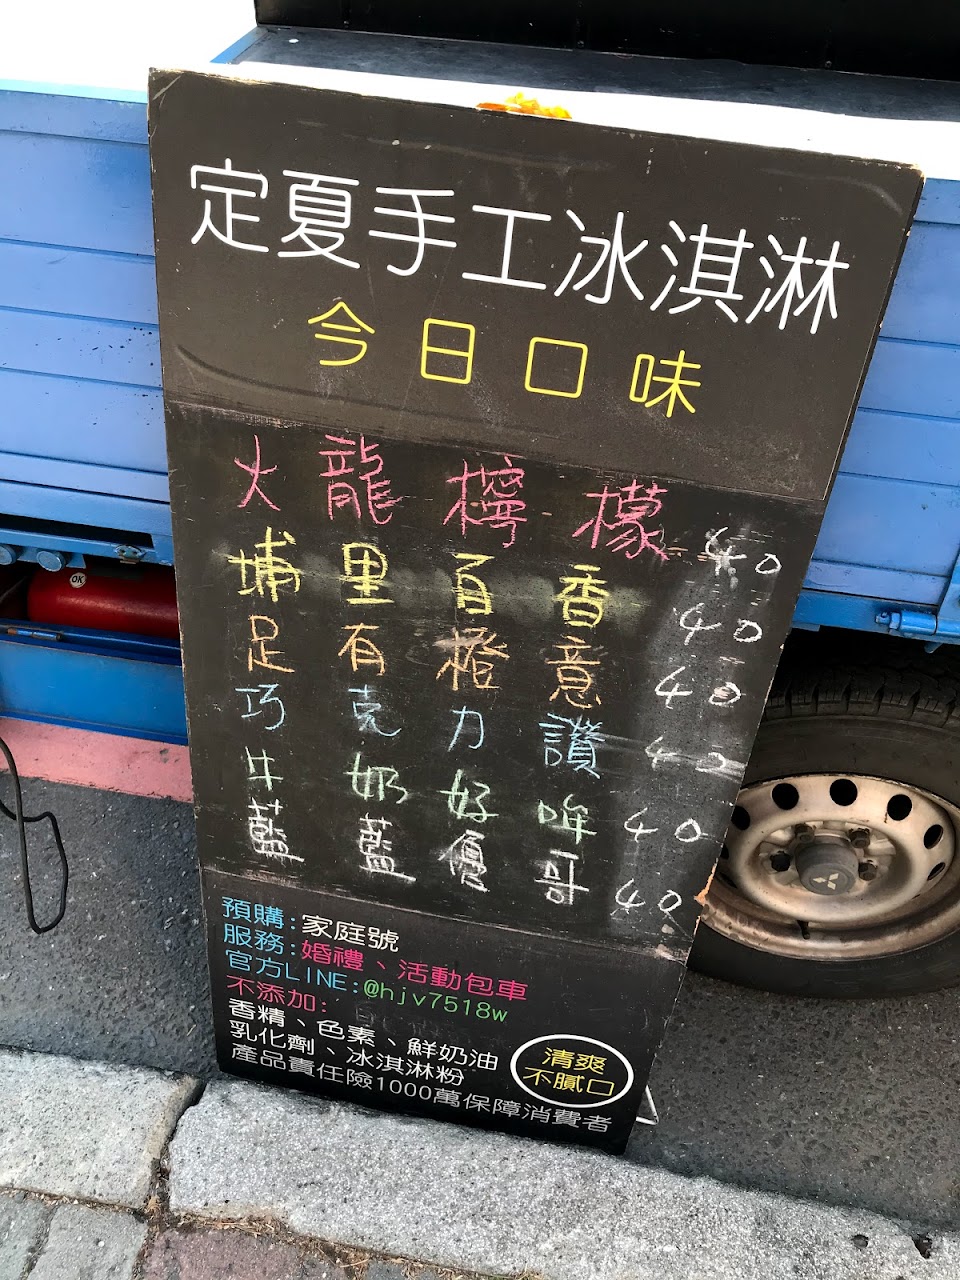 定夏手工冰淇淋
今日口味
火龍檸檬 40
埔里百香 40
足有橙意 40
巧克力讚 40
牛奶好哞 40
藍藍優哥 40
預購:家庭號
服務:婚禮、活動包車
官方LINE:@hjv7518w
不添加:
香精、色素、鮮奶油
乳化劑、冰淇淋粉
產品責任險1000萬保障消費者
清爽
不膩口
OK